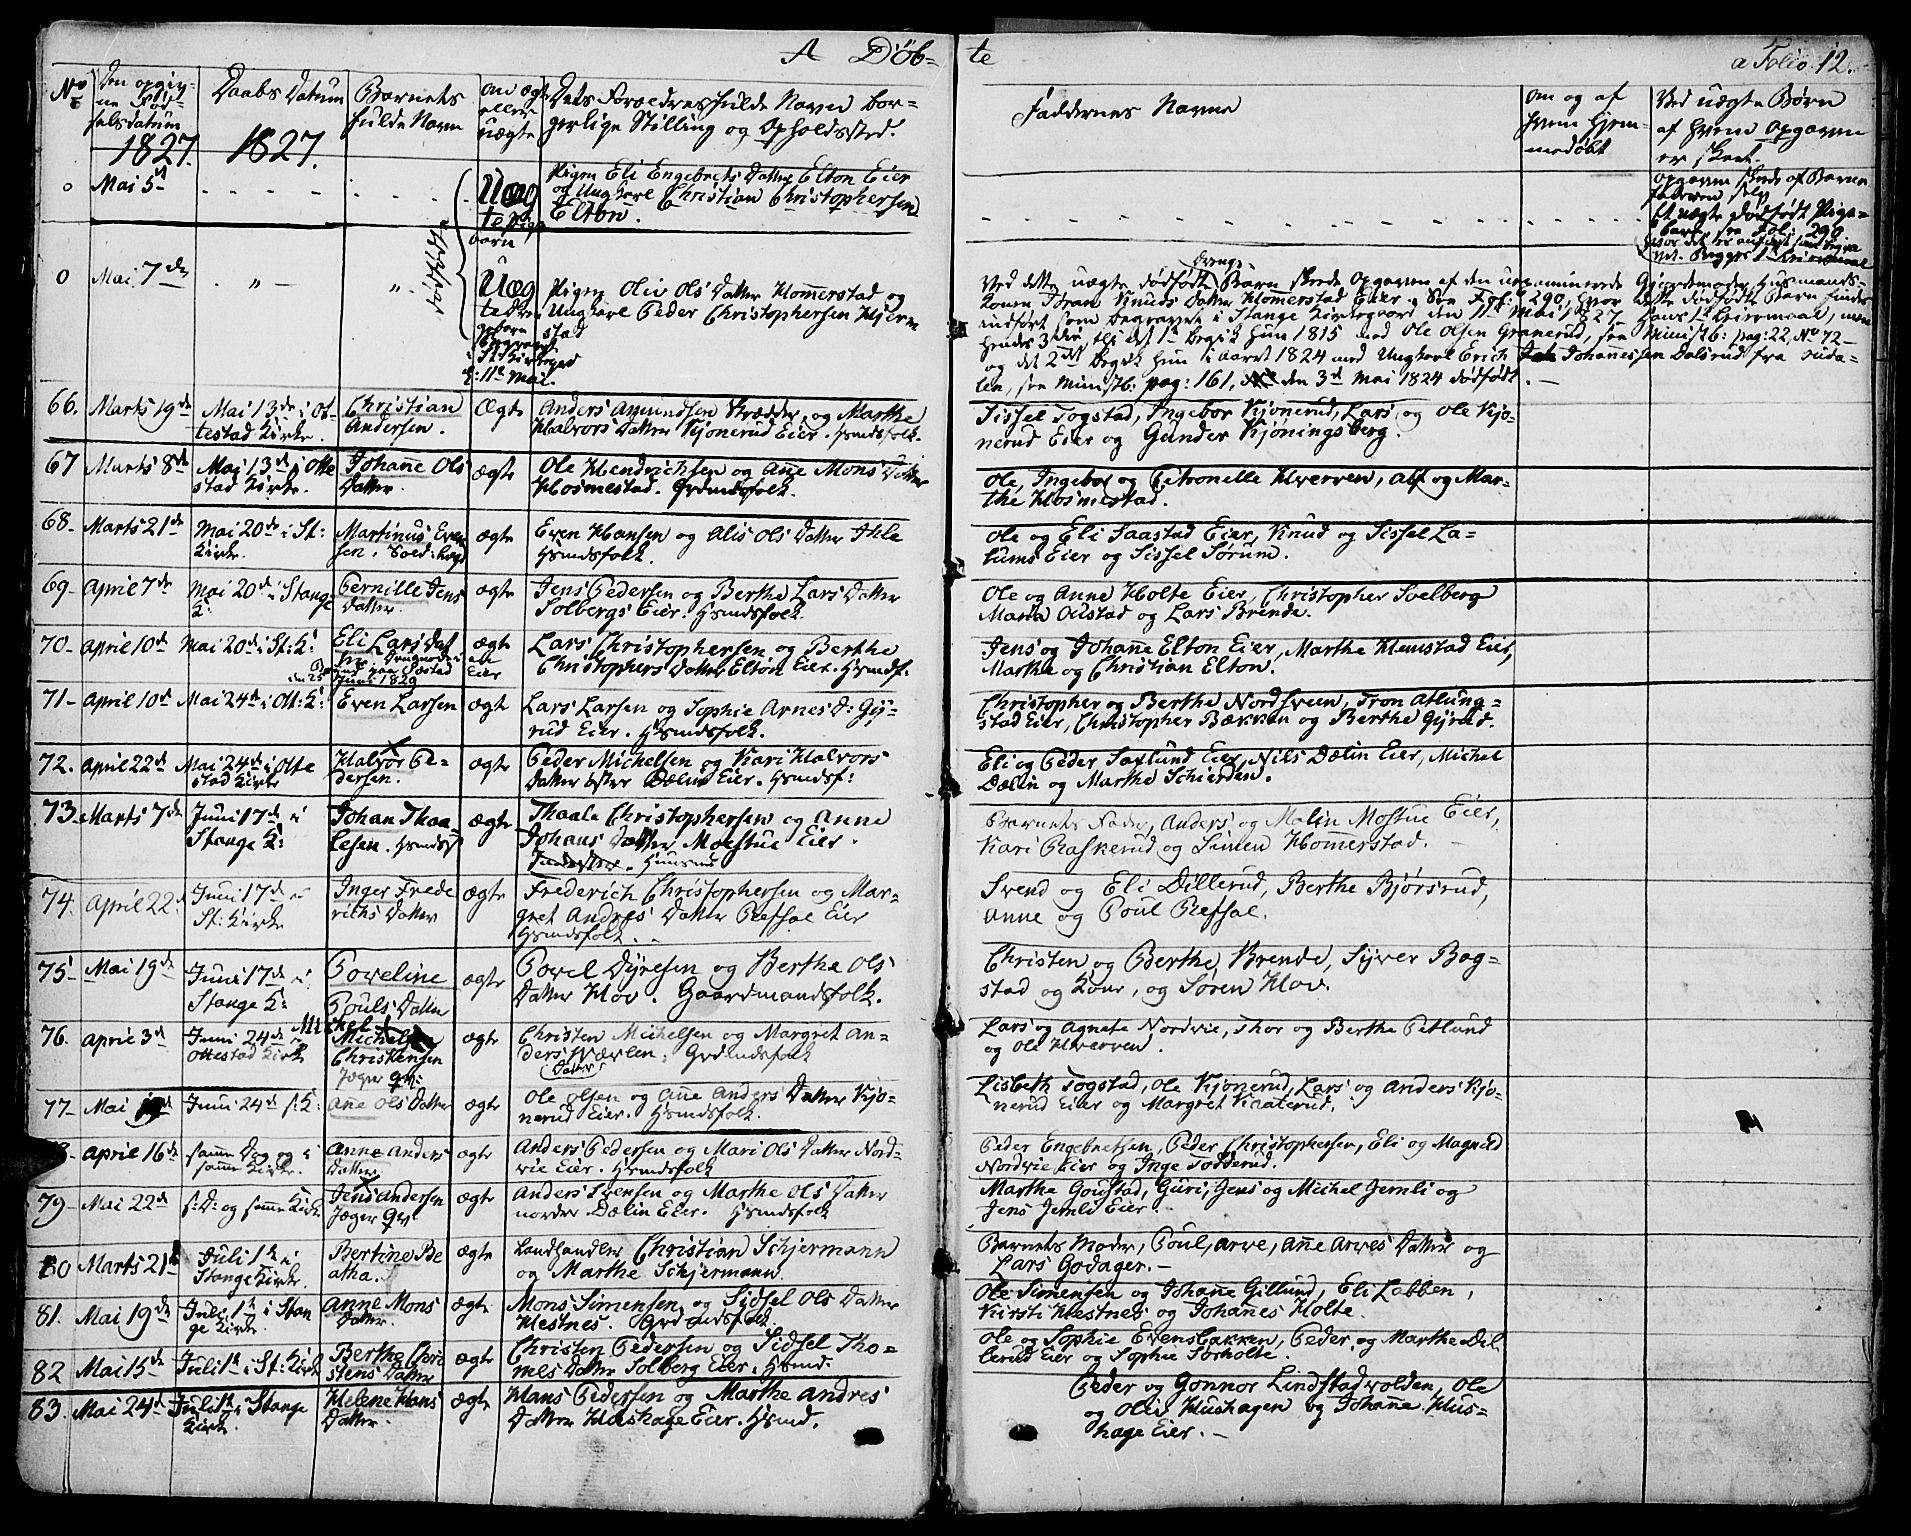 A Döb=
te
a Folio 12.
No
Den opgiv-
ne Föd-
selsdatum
Daabs Datum
Barnets
fulde Navn
om ægte
eller
uægte
Dets Forældres fulde Navne bor-
gerlige Stilling og Opholdssted.
Faddernes Navne
om og af
hvem hjem-
medöbt
Ved uægte Børn
af hvem Opgaven
er skeet.
1827.
1827.
0 Mai 5
Uæg
te
barn
Pigen Eli Engebrets Datter Elton Eier
og Ungkarl Christian Christophersen
Elton.
opgaven skeede af Barne
faderen selv
Et uægte dödfödt Pige-
barn, see Fol: 290
0 Mai 7de
Uæg
te
begravet
i St. Kirkegd
d: 11te Mai.
Pigen Oliv Ols Datter Hommerstad og
Ungkarl Peder Christophersen Hjerm
stad
Drenge
Ved dette uægte dödfödte Barn skede Opgaven af den uexaminerede Gjordemoder Huusmands-
konen Jöran Knuds Datter Hommerstad Eier. See Fol: 290, hvor dette dödfödte Barn findes
indfört som begravet i Stange Kirkegaard den 11te Mai 1827. Hans 1te Leiermaal, men
hendes 3die, thi det 1te begik hun 1815 med Ole Olsen Granerud, see Minist b: pag: 22, No 72 —
og det 2det begik hun i Aaret 1824 med Ungkarl Erich Johannessen Dalsrud fra Ouda-
len, see Minist b: pag: 161, den 3die Mai 1824 dödfödt. —
66. Marts 19de Mai 13de i Ot-
testad Kirke.
Christian
Andersen.
Ægte
Anders Amundsen Skrædder, og Marthe
Halvors Datter Kjönerud Eier. Hsmdsfolk.
Sissel Togstad, Ingebor Kjönerud, Lars og Ole Kjö-
nerud Eier og Gunder Kjöningsberg.
67 Marts 8de Mai 13de i Otte
stad Kirke.
Johanne Ols
Datter.
ægte
Ole Hendrichsen og Anne Mons Datter
Hosmestad. Grdmdsfolk.
Ole, Ingebor og Petronelle Hverven, Alf og Mar-
the Hosmestad.
68- Marts 21de Mai 20de i St:
Kirke.
Martinus Even
sen.
ægte
Even Hansen og Alis Ols Datter Ihle
Hsmdsfolk.
Ole og Eli Saastad Eier, Knud og Sissel La-
lums Eier og Sissel Sörum.
69- April 7de Mai 20de i Stange
K:
Pernille Jens
Datter.
ægte
Jens Pedersen og Berthe Lars Datter
Solbergs Eier. Hsmdsfolk.
Ole og Anne Holte Eier, Christopher Solberg
Maria Olstad og Lars Brende.
70- April 10de Mai 20de i St: K:
Eli Lars Dat
ter
Juni 1829
ægte
Eier
Lars Christophersen og Berthe
Christophers Datter Elton Eier. Hsmdsf.
Jens og Johanne Elton Eier, Marthe Hemstad Eier,
Marthe og Christian Elton.
71- April 10de Mai 24de i Ott: K:
Even Larsen
ægte
Lars Larsen og Sophie Arnes D: Gy-
rud Eier. Hsmdsfolk.
Christopher og Berthe Nordsveen, Tron Atlung-
stad Eier, Christopher Bækken og Berthe Gyrud.
72. April 22de Mai 24de i Otte
stad Kirke
Halvor Pe-
dersen.
ægte
Peder Michelsen og Kari Halvors
Datter öster Dælin Eier. Hsmdsf:
Eli og Peder Saxlund Eier, Nils Dælin Eier, Michel
Dælin og Marthe Schierden.
73- Marts 7de Juni 17de i
Stange K:
Johan Thaa
lesen.
ægte
Thaale Christophersen og Anne
Johans Datter, Moestue Eier.
Barnets Fader, Anders og Malin Mostue Eier,
Kari Raskerud og Simen Hommerstad.
74. April 22: Juni 17de i
St: Kirke
Inger Frede
richs Datter
ægte
Frederich Christophersen og Mar-
gret Andres Datter Refsal Eier
Hsmdsfolk.
Svend og Eli Dillerud, Berthe Bjørsrud,
Anne og Poul Refsal.
75- Mai 19de Juni 17de i
Stange K:
Poveline
Pouls Datter
ægte
Povel Dyresen og Berthe Ols
Datter Hov. Gaardmandsfolk.
Christen og Berthe Brende, Syver Bag-
stad og Kone, og Sören Hov.
76. April 3de Juni 24de i
Ottestad Kirke
Michel
Christensen
Jæger
ægte
Christen Michelsen og Margret An-
ders Wærlen. Grdmdsfolk
Datter
Lars og Agnete Nordvie, Thor og Berthe Petlund
og Ole Hverven.
77- Mai Juni 24de s: K:
Anne Ols Datter
ægte
Ole Olsen og Anne Anders Datter Kjö-
nerud Eier. Hsmdsfolk.
Lisbeth Togstad, Ole Kjönerud, Lars og Anders Kjö-
nerud Eier og Margret Kaaterud.
April 16de samme Dag og i
samme Kirke.
Anne Anders
Datter.
ægte
Anders Pedersen og Mari Ols Datter Nord-
vie Eier. Hsmdsfolk
Peder Engebretsen, Peder Christophersen, Eli og Magnild
Nordvie Eier og Inge Todderud.
79- Mai 22de s: D: og samme Kirke
Jens Andersen
Jæger
ægte
Anders Svensen og Marthe Ols Datter
nordre Dælin Eier. Hsmdsfolk
Marthe Goustad, Guri, Jens og Michel Jemli og
Jens Jemli Eier.
80 Marts 21de Juli 1te i
Stange Kirke.
Bertine Be
atha.
ægte
Landhandler Christian Schjermann
og Marthe Schjermann.
Barnets Moder, Poul, Arve, Anne Arves Datter og
Lars Godager. —
81. Mai 19de Juli 1te i Stan
ge Kirke.
Anne Mons
Datter.
ægte
Mons Simensen og Sidsel Ols Datter
Hestnes. Grdmdsfolk.
Ole Simensen og Johanne Gillund, Eli Labben,
Kirsti Hestnes og Johannes Holte.
82 Mai 15de Juli 1te i St: Kirke
Berthe Chri
stens Datter
ægte
Christen Pedersen og Sidsel Tho-
mes Datter Solberg Eier. Hsmd.
Ole og Sophie Evensbakken, Peder og Marthe Dil
lerud Eier og Sophie Sörholte.
83. Mai 24de Juli 1te i Stange
Kirke.
Helene Hans
Datter.
ægte
Hans Pedersen og Marthe Andres
Datter Hushage Eier. Hsmd.
Peder og Gonnor Lindstadvolden, Ole
og Oliv Hushagen og Johanne Hus-
hage Eier. —